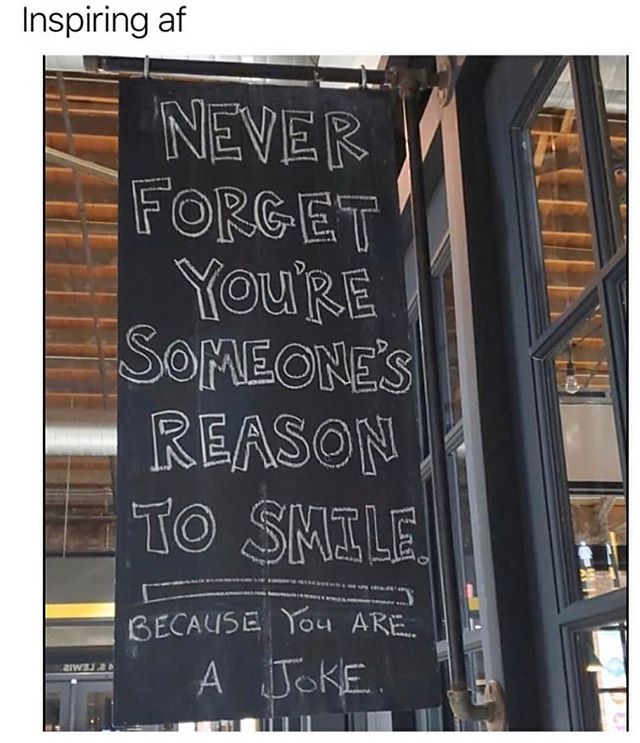 Inspiring af
NEVER
FORGET
YOU'RE
SOMEONE'S
REASON
TO SMILE.
BECAUSE YOU ARE
A JOKE.